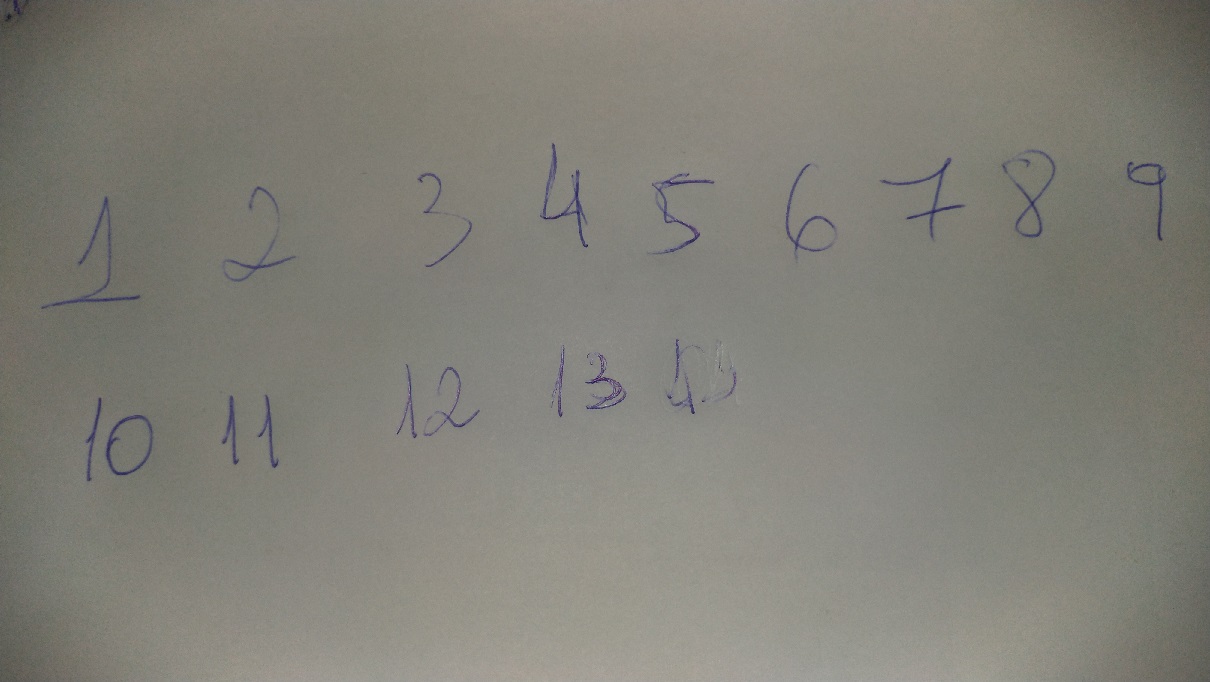 1 2 3 4 5 6 7 8 9
10 11 12 13